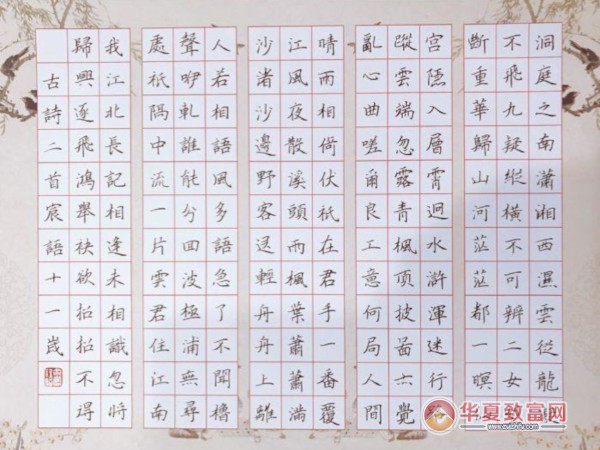 洞庭之南瀟湘西濕雲從龍
不飛九疑縱橫不可辨二女
斷重華歸山河茫茫都一暝
宮隱入層霄迥水滸渾迷行
蹤雲端忽露青楓頂披圖六覺
亂心曲嗟爾良工意何局人間
晴雨相倚伏祇在君手一番覆
江風夜散溪頭雨楓葉蕭蕭滿
沙渚沙邊野客送輕舟舟上離
人若相語風多語急了不聞櫓
聲咿軋誰能分回波極浦無尋
處祇隔中流一片雲君住江南
我江北長記相逢未相識忽將
歸興逐飛鴻舉袂欲招招不得
古詩二首宸語十一歲
华夏致富网